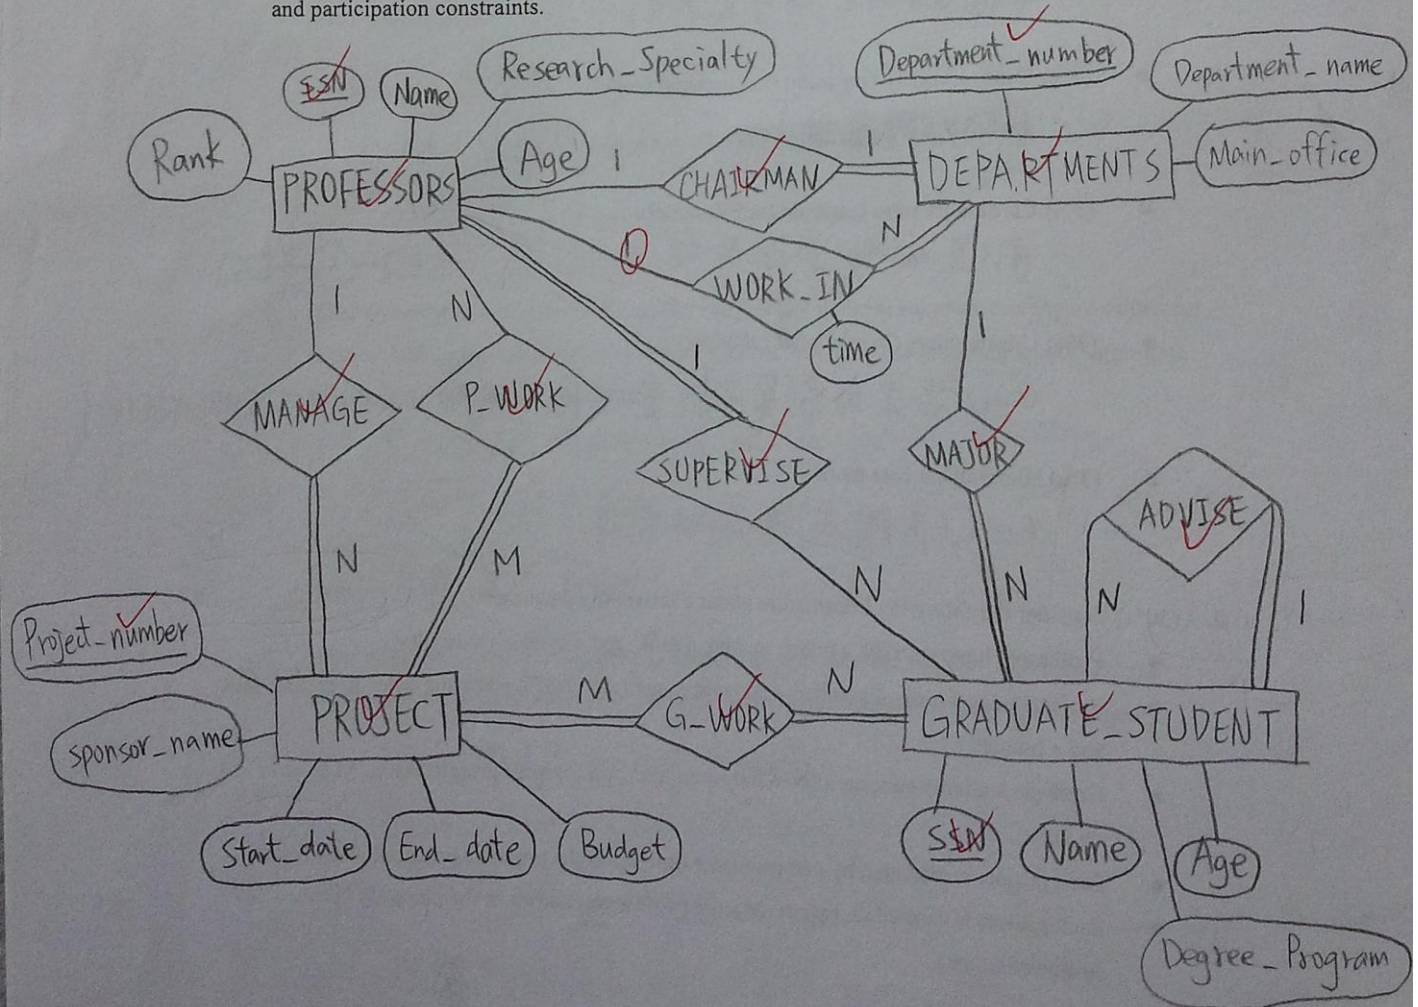 and participation constraints.
SSN
Name
Research_Specialty
Department_number
Department_name
Rank
Age
1
1
PROFESSORS
CHAIRMAN
DEPARTMENTS
Main_office
N
WORK_IN
time
1
N
1
1
MANAGE
P_WORK
SUPERVISE
MAJOR
ADVISE
N
M
N
N
N
1
Project_number
sponsor_name
PROJECT
M
G_WORK
N
GRADUATE_STUDENT
Start_date
End_date
Budget
SSN
Name
Age
Degree_Program